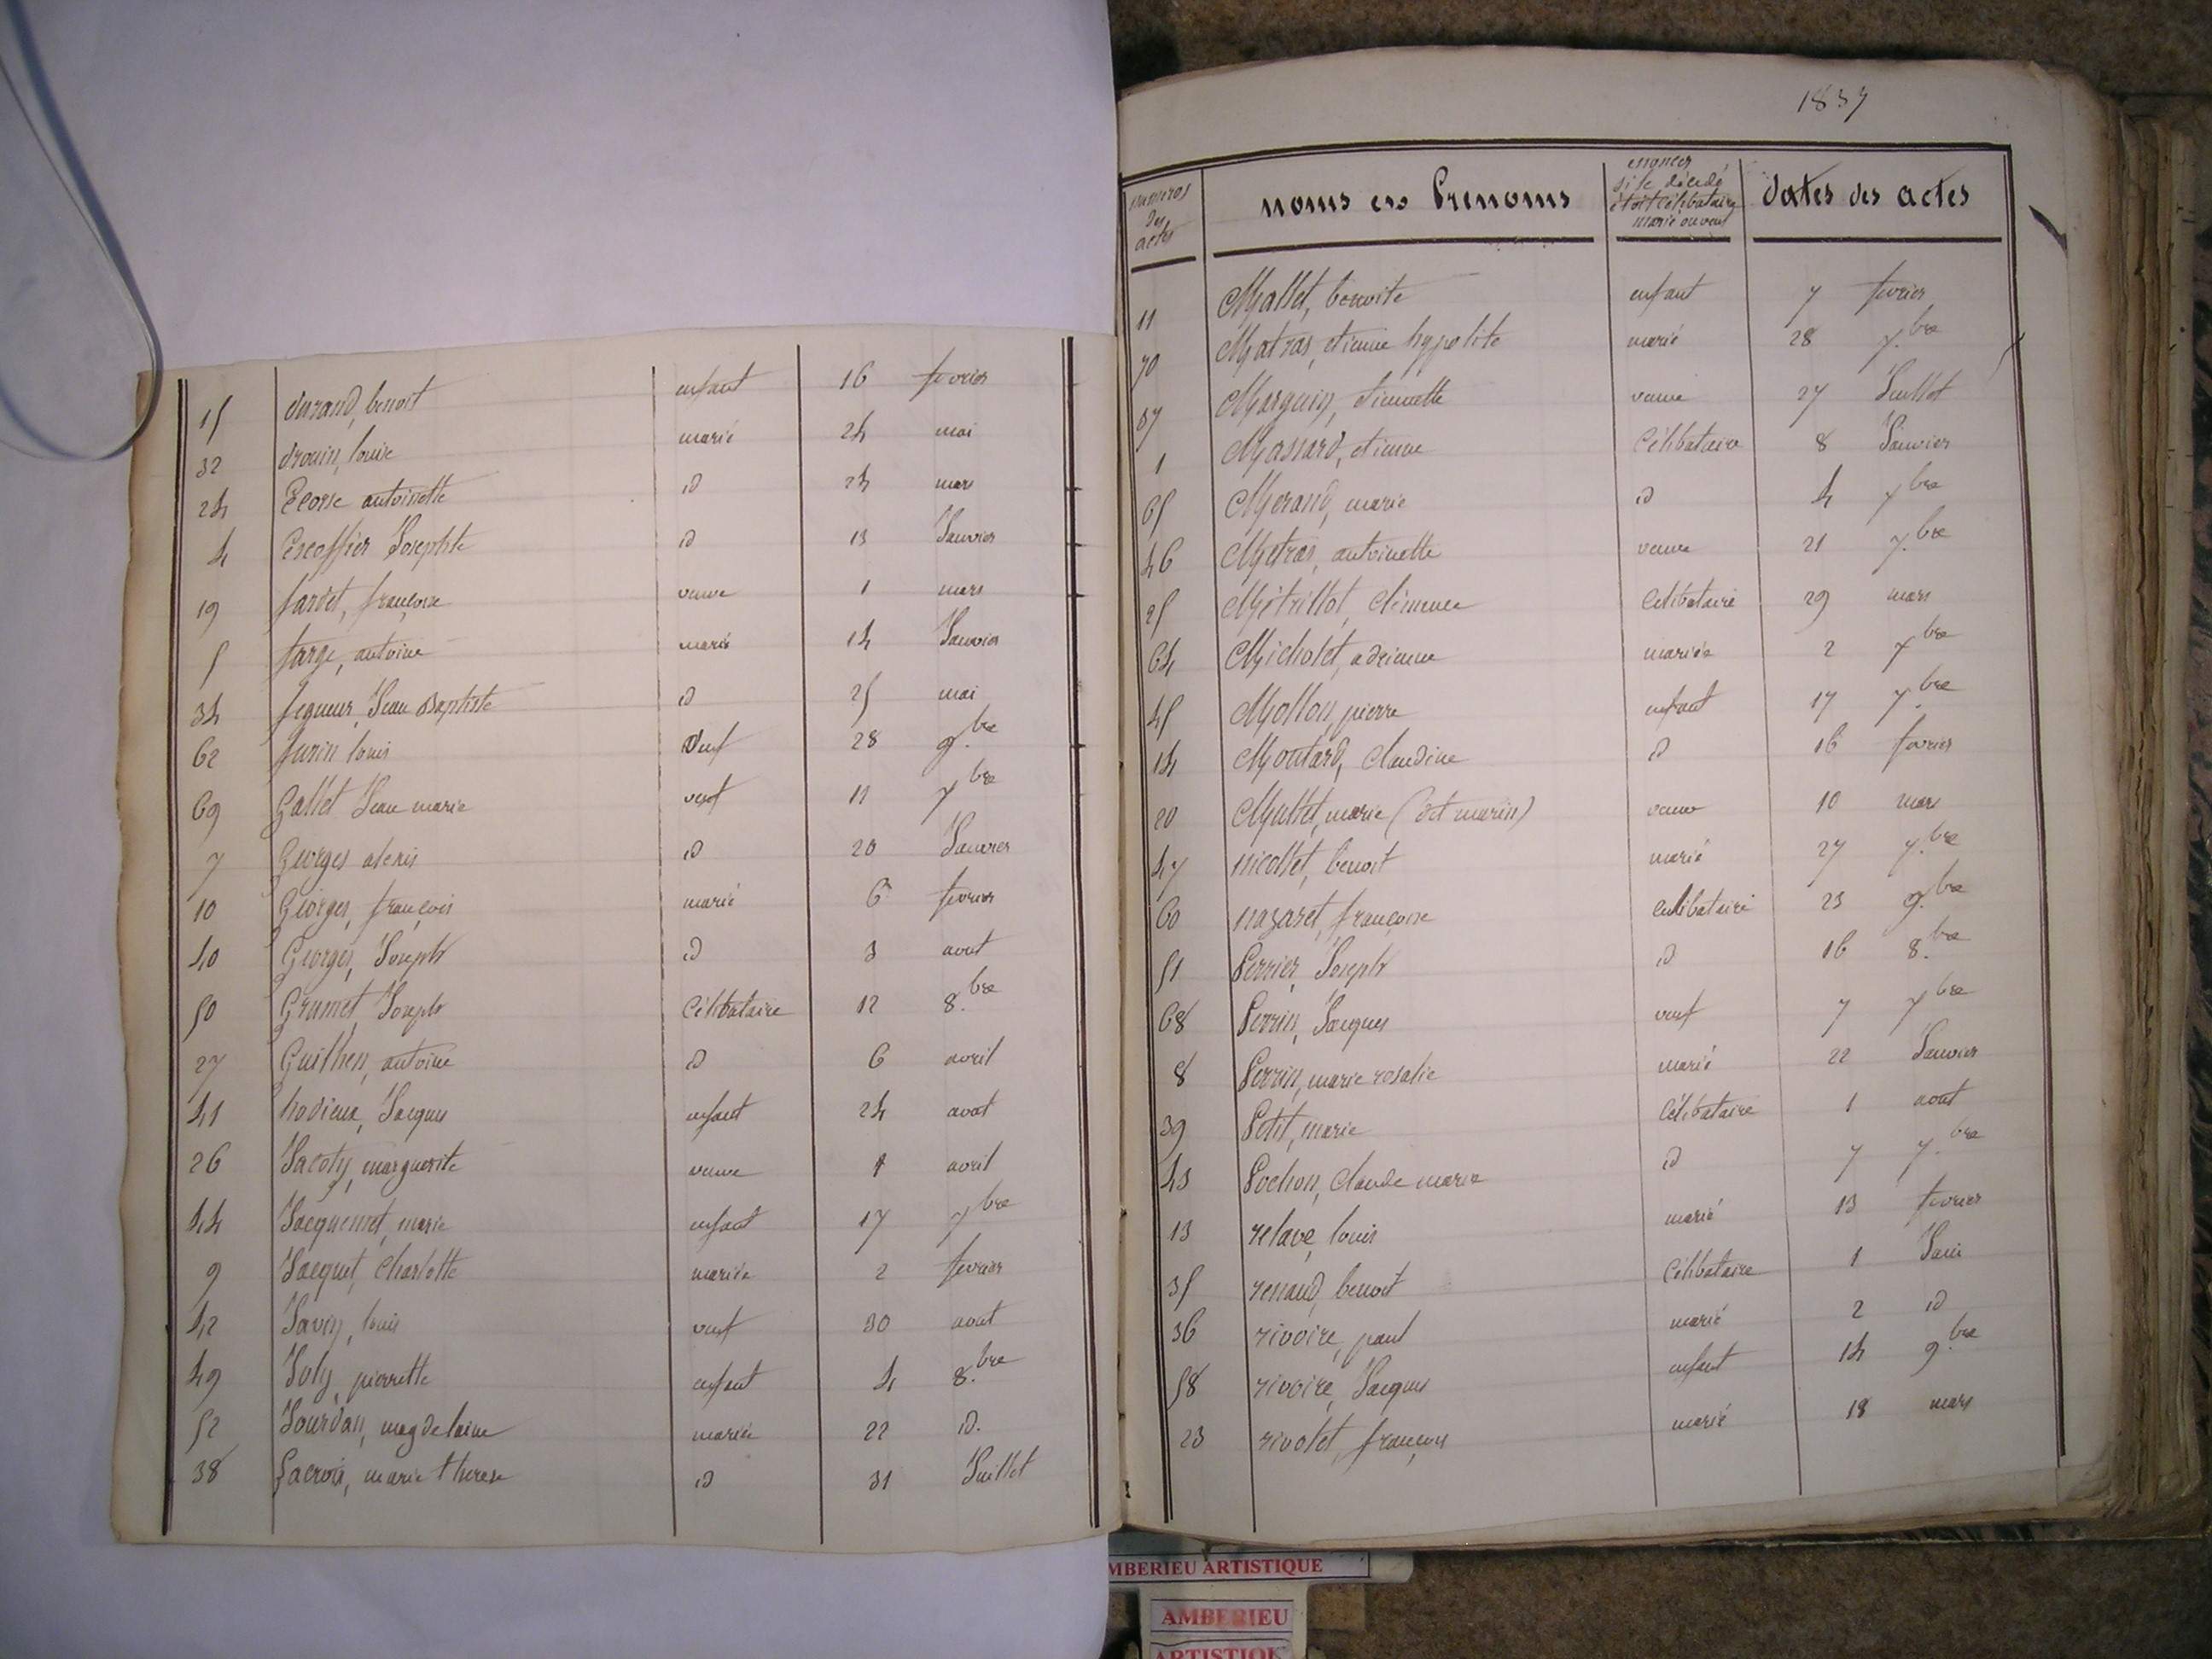 15 durand, benoit enfant 16 fevrier
32 drouin, louise marié 24 mai
24 Ecorse antoinette id 24 mars
4 Escoffier Josephte id 13 Janvier
19 fardet, françoise veuve 1 mars
5 farge, antoine marié 14 Janvier
34 Jean Baptiste id 25 mai
62 furin louis veuf 28 9.bre
69 Gallet Jean marie veuf 11 7bre
7 Georges alexis id 20 Janvier
10 Georges, françois marié 6 fevrier
40 Georges, Joseph id 3 aout
50 Grumet Joseph Célibataire 12 8.bre
27 Guilhen, antoine id 6 avril
41 hodieux, Jacques enfant 24 aout
26 Jacoty, marguerite veuve 1 avril
44 Jacquemet, marie enfant 17 7bre
9 Jacquet, Charlotte mariée 2 fevrier
42 Javin, louis veuf 30 aout
49 Joly, pierrette enfant 4 8.bre
52 Jourdan, magdelaine mariée 22 id.
38 Lacroix, marie therese id 31 Juillet
1837
numeros
des
actes
noms et Prenoms
si le décédé
étoit célibataire
marié ou veuf
dates des actes
11 Mallet, benoite enfant 7 fevrier
70 Matras, etienne hypolite marié 28 7.bre
37 Marguin, etiennette veuve 27 Juillet
1 Massard, etienne Célibataire 8 Janvier
65 Merand, marie id 4 7bre
46 Metras, antoinette veuve 21 7.bre
25 Métrillot, Clémence Celibataire 29 mars
64 Micholet, adrienne mariée 2 7bre
45 Mollon, pierre enfant 17 7.bre
14 Moutard, Claudine id 16 fevrier
20 Mullet, marie (dit marin) veuve 10 mars
47 nicollet, benoit marié 27 7.bre
60 nazaret, françoise Celibataire 23 9.bre
51 Perrier, Joseph id 16 8.bre
68 Perrin, Jacques veuf 7 7bre
8 Perrin, marie rosalie marié 22 Janvier
39 Petit, marie Célibataire 1 aout
43 Pochon, claude marie id 7 7.bre
13 relave, louis marié 13 fevrier
35 renaud, benoit Célibataire 1 Juin
36 rivoire, paul marié 2 id
58 rivoire, Jacques enfant 14 9.bre
23 rivolet, françois marié 18 mars
MBERIEU ARTISTIQUE
AMBERIEU